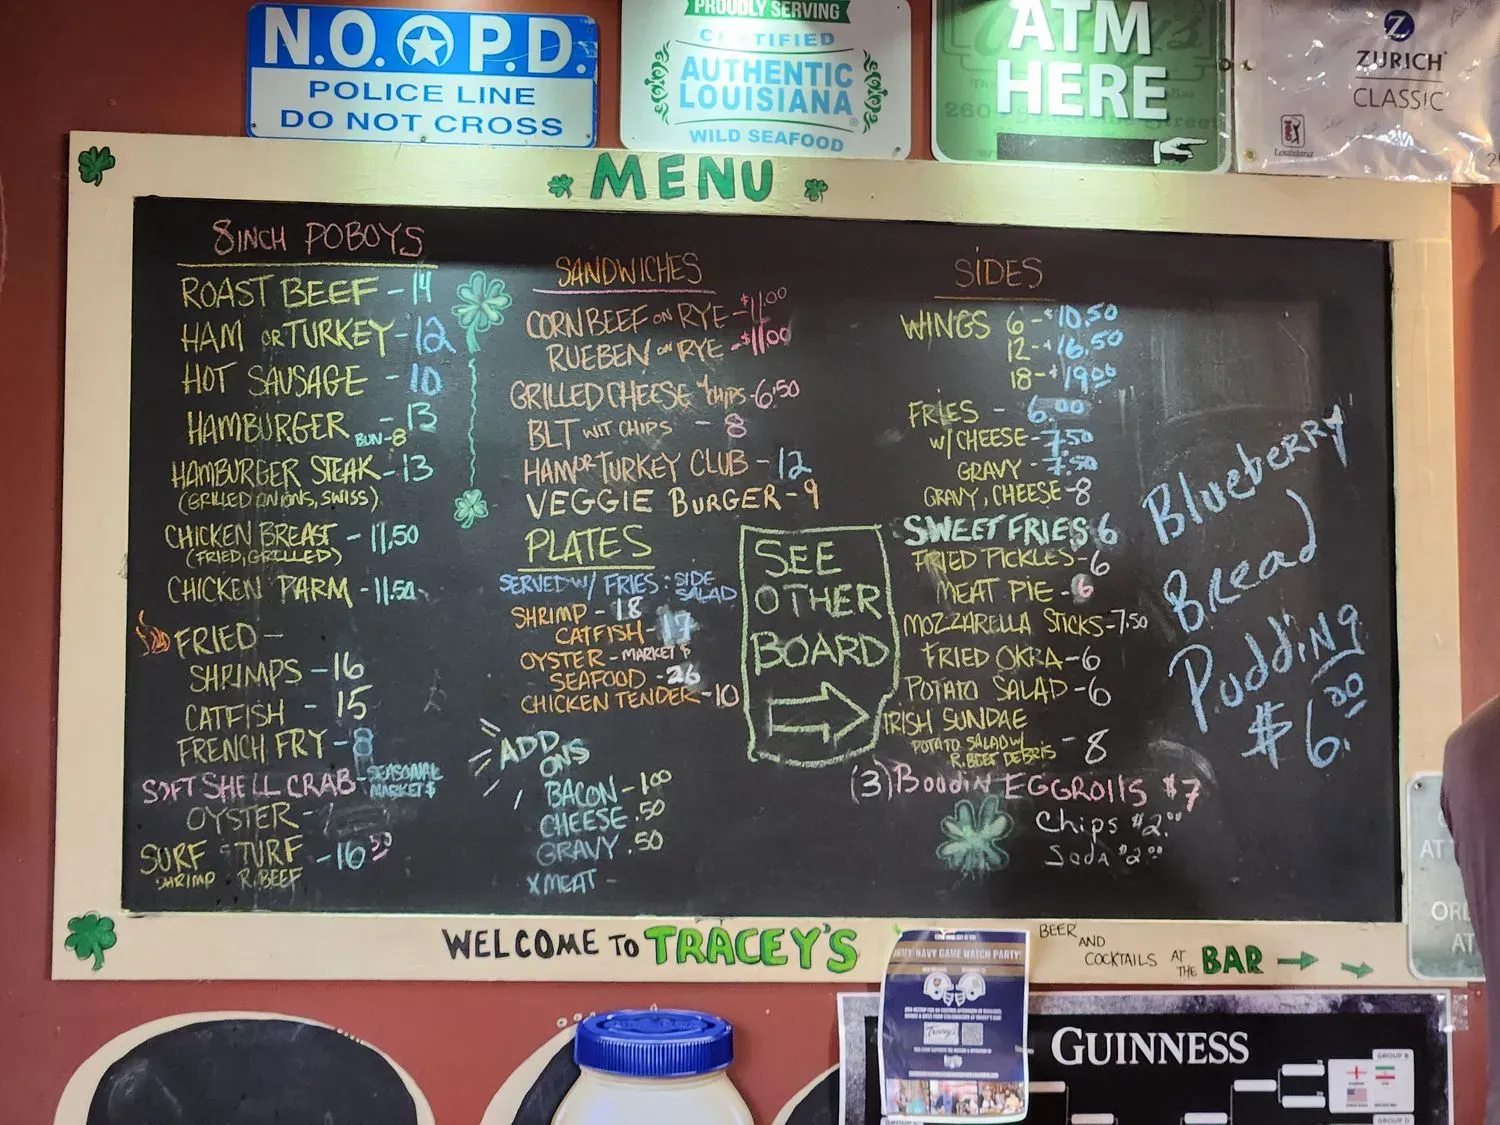 N.O.P.D.
POLICE LINE
DO NOT CROSS
PROUDLY SERVING
CERTIFIED
AUTHENTIC
LOUISIANA
WILD SEAFOOD
ATM
HERE
ZURICH
CLASSIC
Louisiana
MENU
8 INCH POBOYS
ROAST BEEF - 14
HAM OR TURKEY - 12
HOT SAUSAGE - 10
HAMBURGER - 13
BUN - 8
HAMBURGER STEAK - 13
(GRILLED ONIONS, SWISS)
CHICKEN BREAST - 11.50
(FRIED, GRILLED)
CHICKEN PARM - 11.50
FRIED -
SHRIMPS - 16
CATFISH - 15
FRENCH FRY - 8
SOFT SHELL CRAB - SEASONAL
MARKET $
OYSTER -
SURF & TURF - 16.50
SHRIMP R. BEEF
SANDWICHES
CORN BEEF ON RYE - $11.00
RUEBEN ON RYE - $11.00
GRILLED CHEESE W/ CHIPS - 6.50
BLT WIT CHIPS - 8
HAM OR TURKEY CLUB - 12
VEGGIE BURGER - 9
PLATES
SERVED W/ FRIES : SIDE
SALAD
SHRIMP - 18
CATFISH - 17
OYSTER - MARKET $
SEAFOOD - 26
CHICKEN TENDER - 10
ADD
ONS
BACON - 1.00
CHEESE .50
GRAVY .50
X MEAT -
SEE
OTHER
BOARD
SIDES
WINGS 6 - $10.50
12 - $16.50
18 - $19.00
FRIES - 6.00
W/ CHEESE - 7.50
GRAVY - 7.50
GRAVY, CHEESE - 8
SWEET FRIES 6
FRIED PICKLES - 6
MEAT PIE - 6
MOZZARELLA STICKS - 7.50
FRIED OKRA - 6
POTATO SALAD - 6
IRISH SUNDAE
POTATO SALAD W/
R. BEEF DEBRIS - 8
(3) Boudin EGGROllS $7
Chips $2.00
Soda $2.00
Blueberry
Bread
Pudding
$6.00
WELCOME TO TRACEY'S
BEER
AND
COCKTAILS AT
THE BAR
ARMY-NAVY GAME WATCH PARTY!
GUINNESS
GROUP B